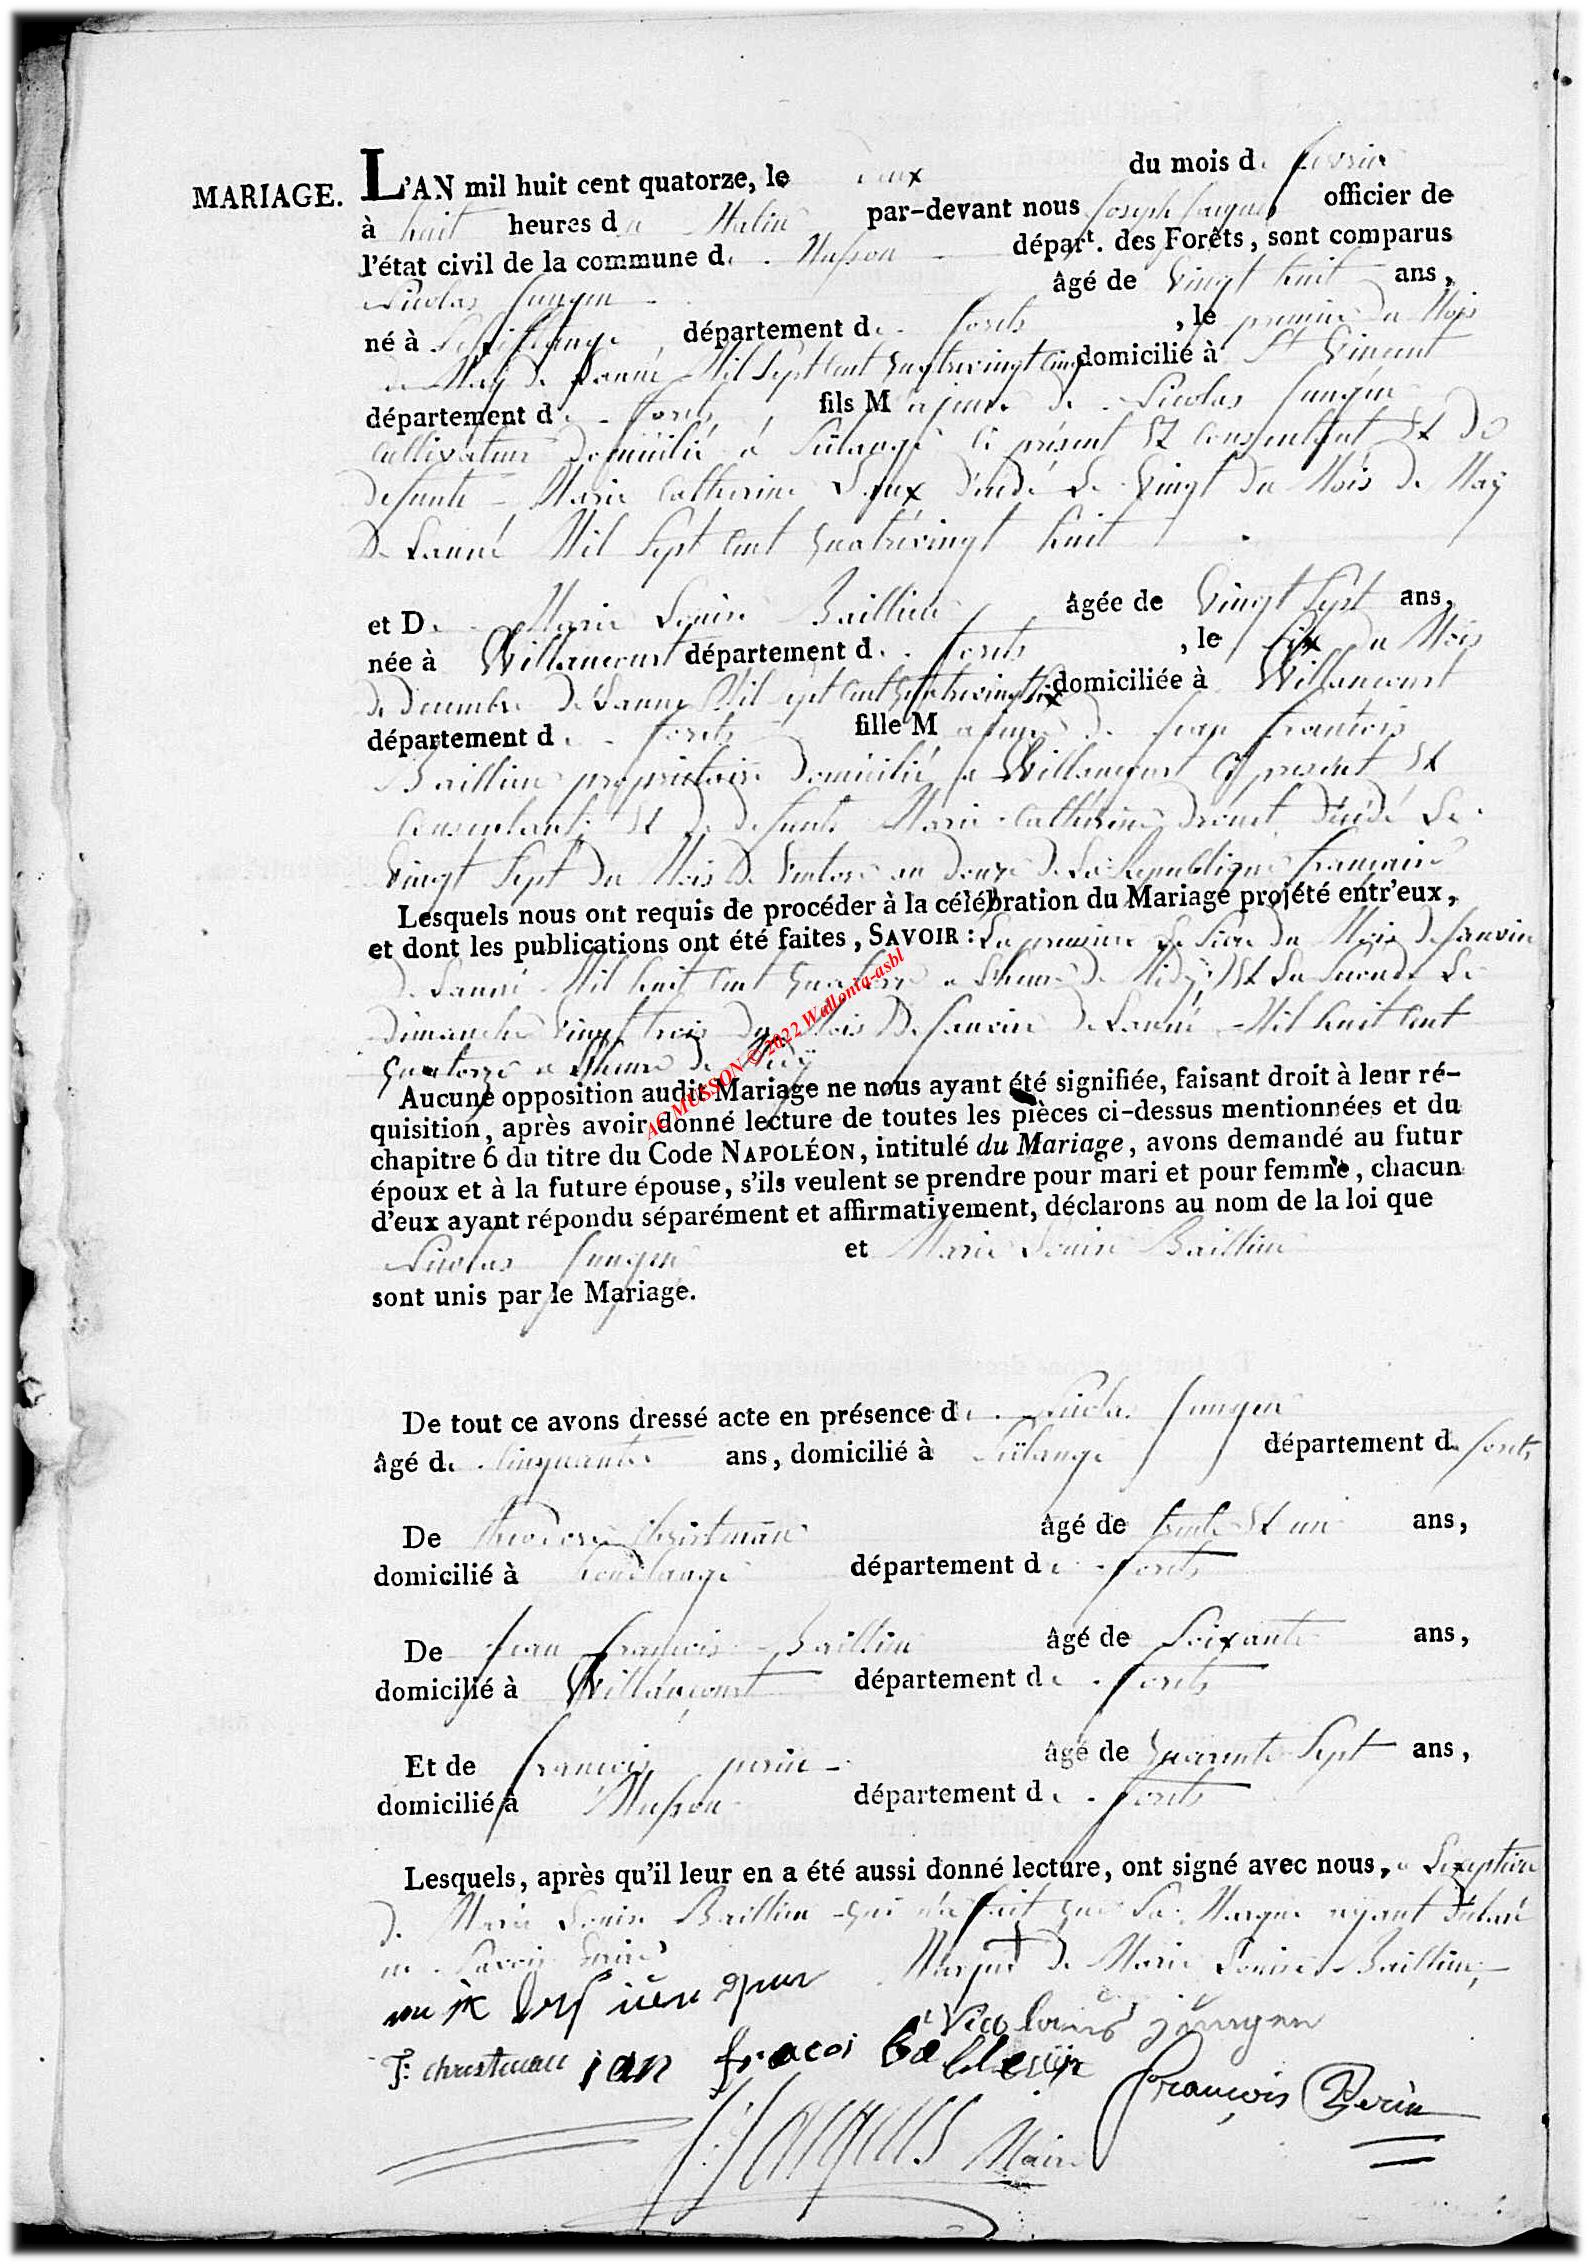 MARIAGE. L'AN mil huit cent quatorze, le deux du mois de fevrier
à huit heures du Matin par-devant nous Joseph Jacques officier de
l'état civil de la commune de Musson départ. des Forêts, sont comparus
Nicolas Jungen âgé de Vingt huit ans,
né à département de forets , le premier du Mois
de Maÿ de Lanné Mil Sept Cent quatrevingt Cinq domicilié à St Vincent
département de forets fils Majeure de Nicolas Jungen
Cultivateur domicilié à Ci présent Et Consentant Et de
defunte Marie Catherine décédé Le Vingt du Mois de Maÿ
de Lanné Mil Sept Cent quatrevingt huit
et De Marie Louise Baillieu âgée de Vingt Sept ans,
née à Willancourt département de forets , le Six du Mois
de decembre de Lanné Mil Sept Cent quatrevingt Six domiciliée à Willancourt
département de forets fille Majeure de Jean francois
Baillieu propriétaire domicilié a Willancourt Cy present Et
Consentant Et de defunte Marie Catherine drouet décédé Le
Vingt Sept du Mois de Ventose an douze de La Republique francaise
Lesquels nous ont requis de procéder à la célébration du Mariage projété entr'eux,
et dont les publications ont été faites, SAVOIR : La premiere Le du Mois de Janvier
de Lanné Mil huit Cent quatorze a Lheure de Midÿ Et La Seconde Le
dimanche Vingt trois du Mois de Janvier de Lanné Mil huit Cent
quatorze a Lheure de Midÿ
Aucune opposition audit Mariage ne nous ayant été signifiée, faisant droit à leur ré-
quisition, après avoir donné lecture de toutes les pièces ci-dessus mentionnées et du
chapitre 6 du titre du Code NAPOLÉON, intitulé du Mariage, avons demandé au futur
époux et à la future épouse, s'ils veulent se prendre pour mari et pour femme, chacun
d'eux ayant répondu séparément et affirmativement, déclarons au nom de la loi que
Nicolas Jungen et Marie Louise Baillieu
sont unis par le Mariage.
AC MUSSON © 2022 Wallonia-asbl
De tout ce avons dressé acte en présence de Nicolas Jungen
âgé de Cinquante ans, domicilié à département de forets
De theodore Christman âgé de trente Et un ans,
domicilié à département de forets
De Jean francois Baillieu âgé de Soixante ans,
domicilié à Willancourt département de forets
Et de francois perin âgé de quarante Sept ans,
domicilié à Musson département de forets
Lesquels, après qu'il leur en a été aussi donné lecture, ont signé avec nous, a Lexeption
de Marie Louise Baillieu qui n'a fait que Sa Marque ayant déclaré
ne Savoir Ecrire Marque de Marie Louise Baillieu
Nicolaus jungen
T: christman ian fracoi François Perin
J: Jacques Maire